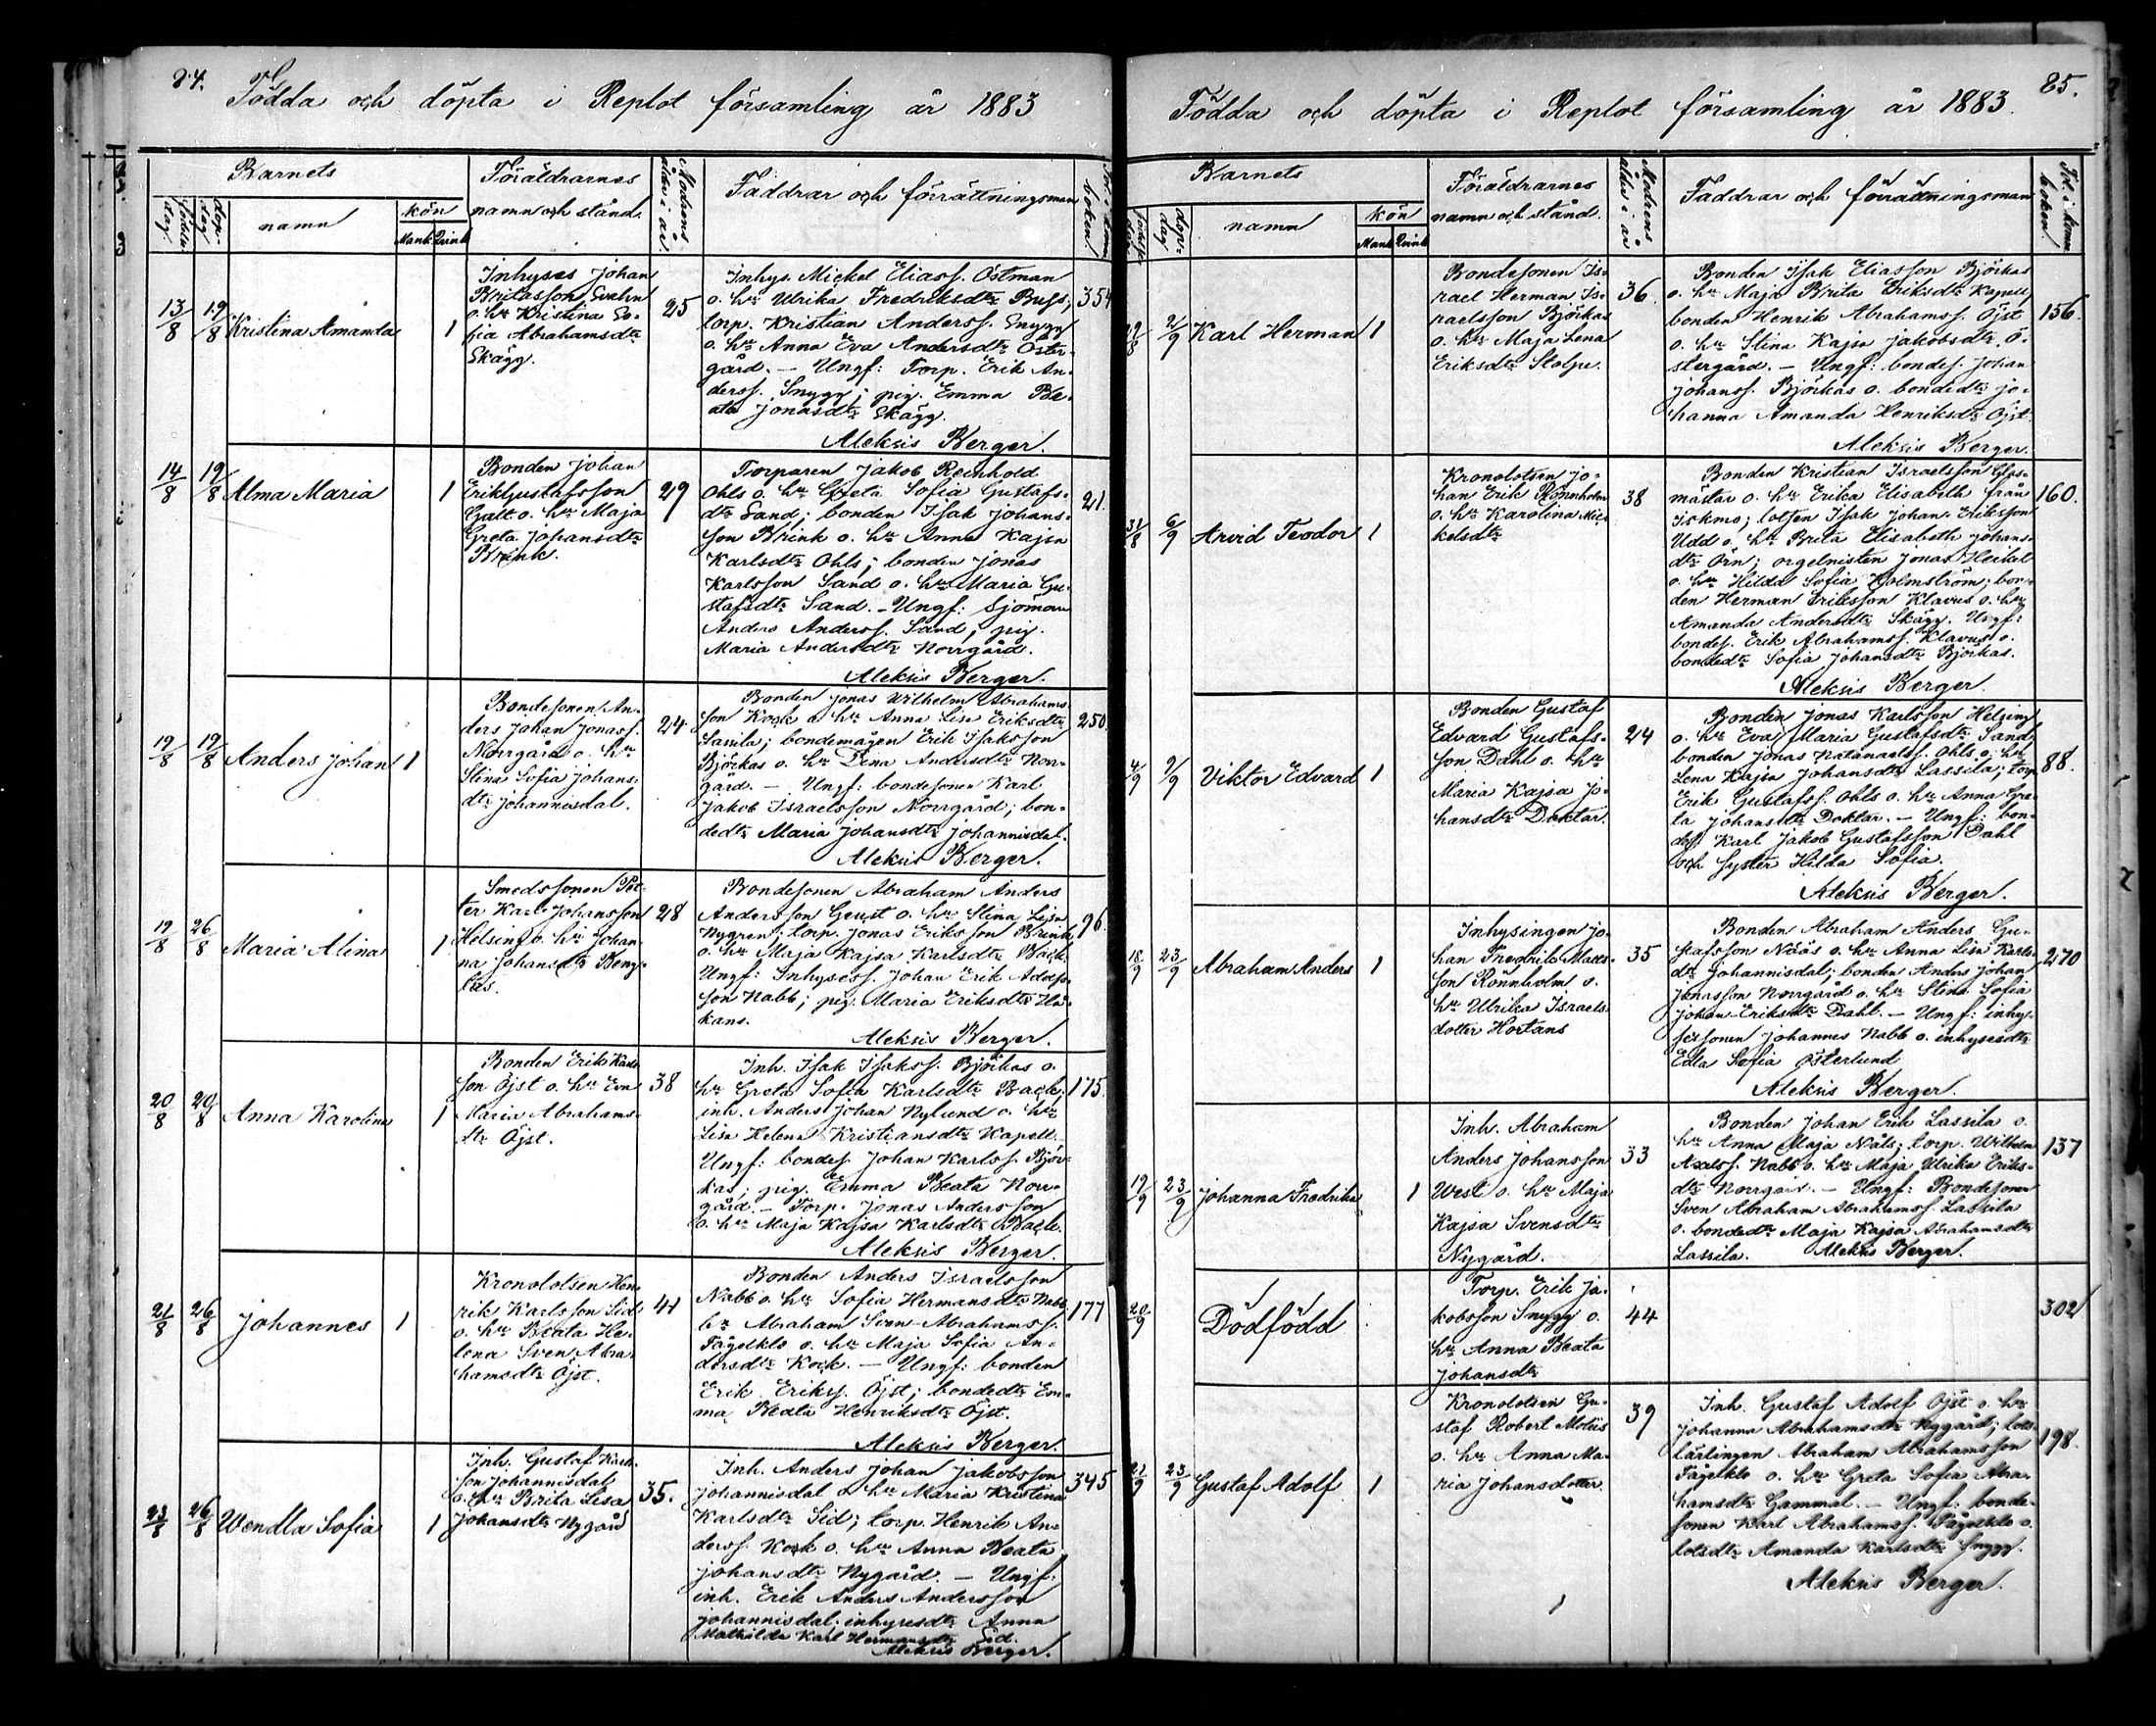 84.
Födda och döpta i Replot församling år 1883
Barnets
Föräldrarnes
namn och stånd.
Modrens
ålder i år.
Faddrar och förrättningsman
födelse-
dag
dop-
dag
namn
kön
Mank.
Qvink.
13/8
19/8
Kristina Amanda
1
Inhyses Johan
Britasson Svahn
o. hu Kristina So-
fia Abrahamsdtr
Skägg.
25
Inhys. Mickel Eliass. Östman
o. hu Ulrika Fredriksdtr Buss;
torp. Kristian Anderss. Snygg
o. hu Anna Eva Andersdtr Öster-
gård. — Ungf: Torp. Erik An-
derss. Snygg; pig. Emma Be-
ata Jonasdtr Skägg.
Aleksis Berger.
354
14/8
19/8
Alma Maria
1
Bonden Johan
Erik Gustafsson
Galt o. hu Maja
Greta Johansdtr
Brink.
29
Torparen Jakob Reinhold
Ohls o. hu Greta Sofia Gustafs-
dtr Sand; bonden Isak Johans-
son Brink o. hu Anna Kajsa
Karlsdtr Ohls; bonden Jonas
Karlsson Sand o. hu Maria Gu-
stafsdtr Sand. — Ungf: Sjöman
Anders Anderss. Sand; pig.
Maria Andersdtr Norrgård.
Aleksis Berger.
21.
19/8
19/8
Anders Johan
1
Bondesonen An-
ders Johan Jonass.
Norrgård o. hu
Stina Sofia Johans-
dtr Johannisdal.
24.
Bonden Jonas Wilhelm Abrahams-
son Kock o. hu Anna Lisa Eriksdtr
Lassila; bondemågen Erik Isaksson
Björkas o. hu Dina Andersdtr Norr-
gård. — Ungf: bondesonen Karl
Jakob Israelsson Norrgård; bon-
dedtr Maria Johansdtr Johannisdal.
Aleksis Berger.
250
19/8
26/8
Maria Alina
1
Smedssonen Pet-
ter Karl Johansson
Helsing o. hu Johan-
na Johansdtr Beng-
las.
28
Bondesonen Abraham Anders
Andersson Geust o. hu Stina Lisa
Nygren; torp. Jonas Eriksson Brink
o. hu Maja Kajsa Karlsdtr Back.
Ungf: Inhysess. Johan Erik Adolfs-
son Nabb; pig. Maria Eriksdtr Hå-
kans.
Aleksis Berger.
96.
20/8
20/8
Anna Karolina
1
Bonden Erik Karls-
son Öjst o. hu Eva
Maria Abrahams-
dtr Öjst.
38
Inh. Isak Isakss. Björkas o.
hu Greta Sofia Karlsdtr Back;
inh. Anders Johan Nylund o. hu
Lisa Helena Kristiansdtr Kapell.
Ungf: bondes. Johan Karlss. Björ-
kas; pig. Emma Beata Norr-
gård. — Torp. Jonas Andersson
o. hu Maja Kajsa Karlsdtr Back.
Aleksis Berger.
175.
21/8
26/8
Johannes
1
Kronolotsen Hen-
rik Karlsson Sid
o. hu Beata He-
lena Sven Abra-
hamsdtr Öjst.
41
Bonden Anders Israelsson
Nabb o. hu Sofia Hermansdtr Nabb
Abraham Sven-Abrahamss.
Fågelklo o. hu Maja Sofia An-
dersdtr Kock. — Ungf: bonden
Erik Erikss. Öjst; bondedtr Em-
ma Beata Henriksdtr Öjst.
Aleksis Berger.
177
23/8
26/8
Wendla Sofia
1
Inh. Gustaf Karls-
son Johannisdal
o. hu Brita Lisa
Johansdtr Nygård
35.
Inh. Anders Johan Jakobsson
Johannisdal o. hu Maria Kristina
Karlsdtr Sid; torp. Henrik An-
derss. Kock o. hu Anna Beata
Johansdtr Nygård. — Ungf:
inh. Erik Anders Andersson
Johannisdal; inhysesdtr Anna
Mathilda Karl Hermansdtr Sid.
Aleksis Berger.
345
85.
Födda och döpta i Replot församling år 1883.
Barnets
Föräldrarnes
namn och stånd.
Modrens
ålder i år
Faddrar och förrättningsman
Fol. i komm.
boken.
dop-
dag
namn
kön
Mank.
Qvink.
29/8
2/9
Karl Herman
1
Bondesonen Is-
rael Herman Is-
raelsson Björkas
o. hu Maja Lena
Eriksdtr Stolpe.
36.
Bonden Isak Eliasson Björkas
o. hu Maja Brita Eriksdtr Kapell;
bonden Henrik Abrahamss. Öjst
o. hu Stina Kajsa Jakobsdtr Ö-
stergård. — Ungf: bondes. Johan
Johanss. Björkas o. bondedtr Jo-
hanna Amanda Henriksdtr Öjst
Aleksis Berger.
156.
31/8
6/9
Arvid Teodor
1
Kronolotsen Jo-
han Erik Rönnholm
o. hu Karolina Mic-
kelsdtr
38
Bonden Kristian Israelsson Glas-
mästar o. hu Erika Elisabeth från
Iskmo; lotsen Isak Johan Eriksson
Udd o. hu Brita Elisabeth Johans-
dtr Örn; orgelnisten Jonas Heikel
o. hu Hilda Sofia Holmström; bon-
den Herman Eriksson Klavus o. hu
Amanda Andersdtr Skägg. Ungf:
bondes. Erik Abrahamss. Klavus o.
bondedtr Sofia Johansdtr Björkas.
Aleksis Berger.
160.
4/9
9/9
Viktor Edvard
1
Bonden Gustaf
Edvard Gustafs-
son Dahl o. hu
Maria Kajsa Jo-
hansdtr Doktar.
24
Bonden Jonas Karlsson Helsing
o. hu Eva Maria Gustafsdtr Sand;
bonden Jonas Natanaelss. Ohls o. hu
Lena Kajsa Johansdtr Lassila; torp.
Erik Gustafss. Ohls o. hu Anna Gre-
ta Johansdtr Doktar. — Ungf: bon-
des. Karl Jakob Gustafsson Dahl
och syster Hilda Sofia.
Aleksis Berger.
88.
18/9
23/9
Abraham Anders
1
Inhysingen Jo-
han Fredrik Mats-
son Rönnholm o.
hu Ulrika Israels-
dotter Hortans
35
Bonden Abraham Anders Gu-
stafsson Näås o. hu Anna Lisa Karls-
dtr Johannisdal; bonden Anders Johan
Jonasson Norrgård o. hu Stina Sofia
Johan-Eriksdtr Dahl. — Ungf: inhy-
sessonen Johannes Nabb o. inhysesdtr
Edla Sofia Österlund
Aleksis Berger.
270
19/9
23/9
Johanna Fredrika
1
Inh. Abraham
Anders Johansson
West o. hu Maja
Kajsa Svensdtr
Nygård.
33
Bonden Johan Erik Lassila o.
hu Anna Maja Nåls; torp. Wilhelm
Axelss. Nabb o. hu Maja Ulrika Eriks-
dtr Norrgård. — Ungf: Bondesonen
Sven Abraham Abrahamss. Lassila
o. bondedtr Maja Kajsa Abrahamsdtr
Lassila. Aleksis Berger.
137
20/9
Dödfödd
Torp. Erik Ja-
kobsson Snygg o.
hu Anna Beata
Johansdtr
44
302
21/9
23/9
Gustaf Adolf
1
Kronolotsen Gu-
staf Robert Motus
o. hu Anna Ma-
ria Johansdotter
39
Inh. Gustaf Adolf Öjst o. hu
Johanna Abrahamsdtr Nygård; lots-
lärlingen Abraham Abrahamsson
Fågelklo o. hu Greta Sofia Abra-
hamsdtr Gammal. — Ungf: bonde-
sonen Karl Abrahamss. Fågelklo o.
lotsdtr Amanda Karlsdtr Snygg.
Aleksis Berger.
198.